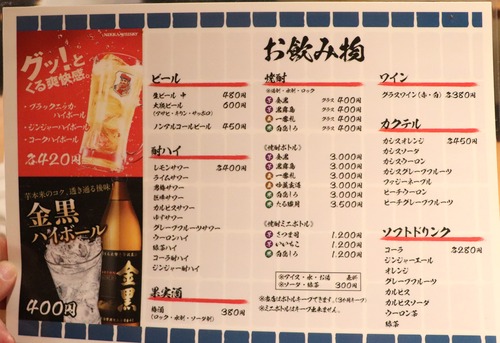 NIKKA WHISKY
グッ!と
くる爽快感。
・ブラックニッカ
ハイボール
・ジンジャーハイボール
・コークハイボール
各420円
芋本来のコク、透き通る後味!
金黒
ハイボール
金黒
400円
お飲み物
ビール
生ビール 中 480円
大瓶ビール 600円
(アサヒ・キリン・サッポロ)
ノンアルコールビール 450円
酎ハイ
レモンサワー 各400円
ライムサワー
青梅サワー
巨峰サワー
カルピスサワー
ゆずサワー
グレープフルーツサワー
ウーロンハイ
緑茶ハイ
コーラ酎ハイ
ジンジャー酎ハイ
果実酒
梅酒 380円
(ロック・水割・ソーダ割)
焼酎
※湯割・水割・ロック
芋 金黒 グラス 400円
芋 黒霧島 グラス 400円
麦 一番札 グラス 400円
グラス 400円
(焼酎ボトル)
芋 金黒 3,000円
芋 黒霧島 3,000円
麦 一番札 3,000円
3,000円
3,000円
3,500円
(焼酎ミニボトル)
芋 さつま司 1,200円
いいちこ 1,200円
1,200円
※アイス・水・お湯 無料
※ソーダ・緑茶 300円
※当店はボトルキープできます。(3か月キープ)
※ミニボトルはキープ出来ません。
ワイン
グラスワイン(赤・白) 各380円
カクテル
カシスオレンジ 各450円
カシスソーダ
カシスウーロン
カシスグレープフルーツ
ファジーネーブル
ピーチウーロン
ピーチグレープフルーツ
ソフトドリンク
コーラ 各280円
ジンジャーエール
オレンジ
グレープフルーツ
カルピス
カルピスソーダ
ウーロン茶
緑茶